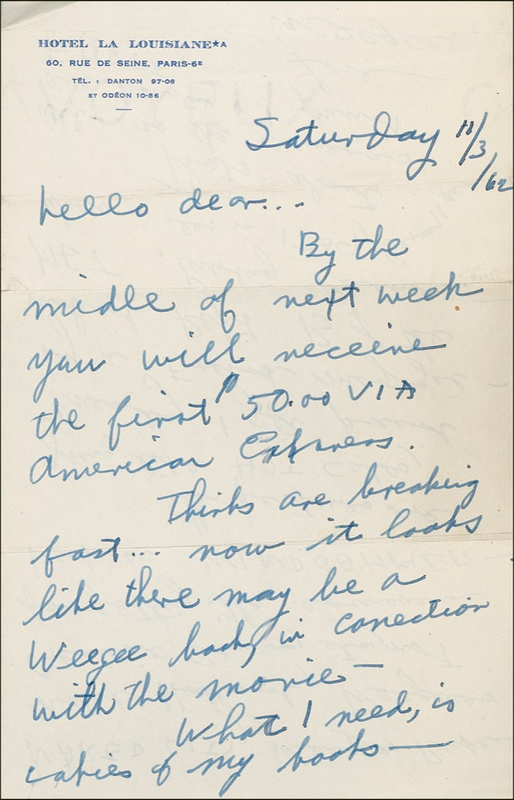 HOTEL LA LOUISIANE★A
60, RUE DE SEINE, PARIS-6E
TÉL. : DANTON 97-08
ET ODÉON 10-86
Saturday 11/3/62
hello dear...
By the
midle of next week
you will receive
the first $50.00 VIA
American Express.
Thinks are breaking
fast... now it looks
like there may be a
Weegee book, in conection
with the movie—
What I need, is
copies of my books—